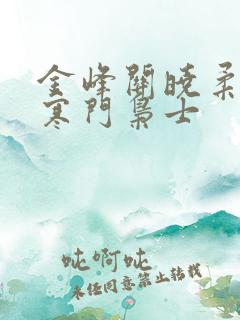 金峰關曉柔
寒門梟士
吨啊吨
未经同意禁止转载